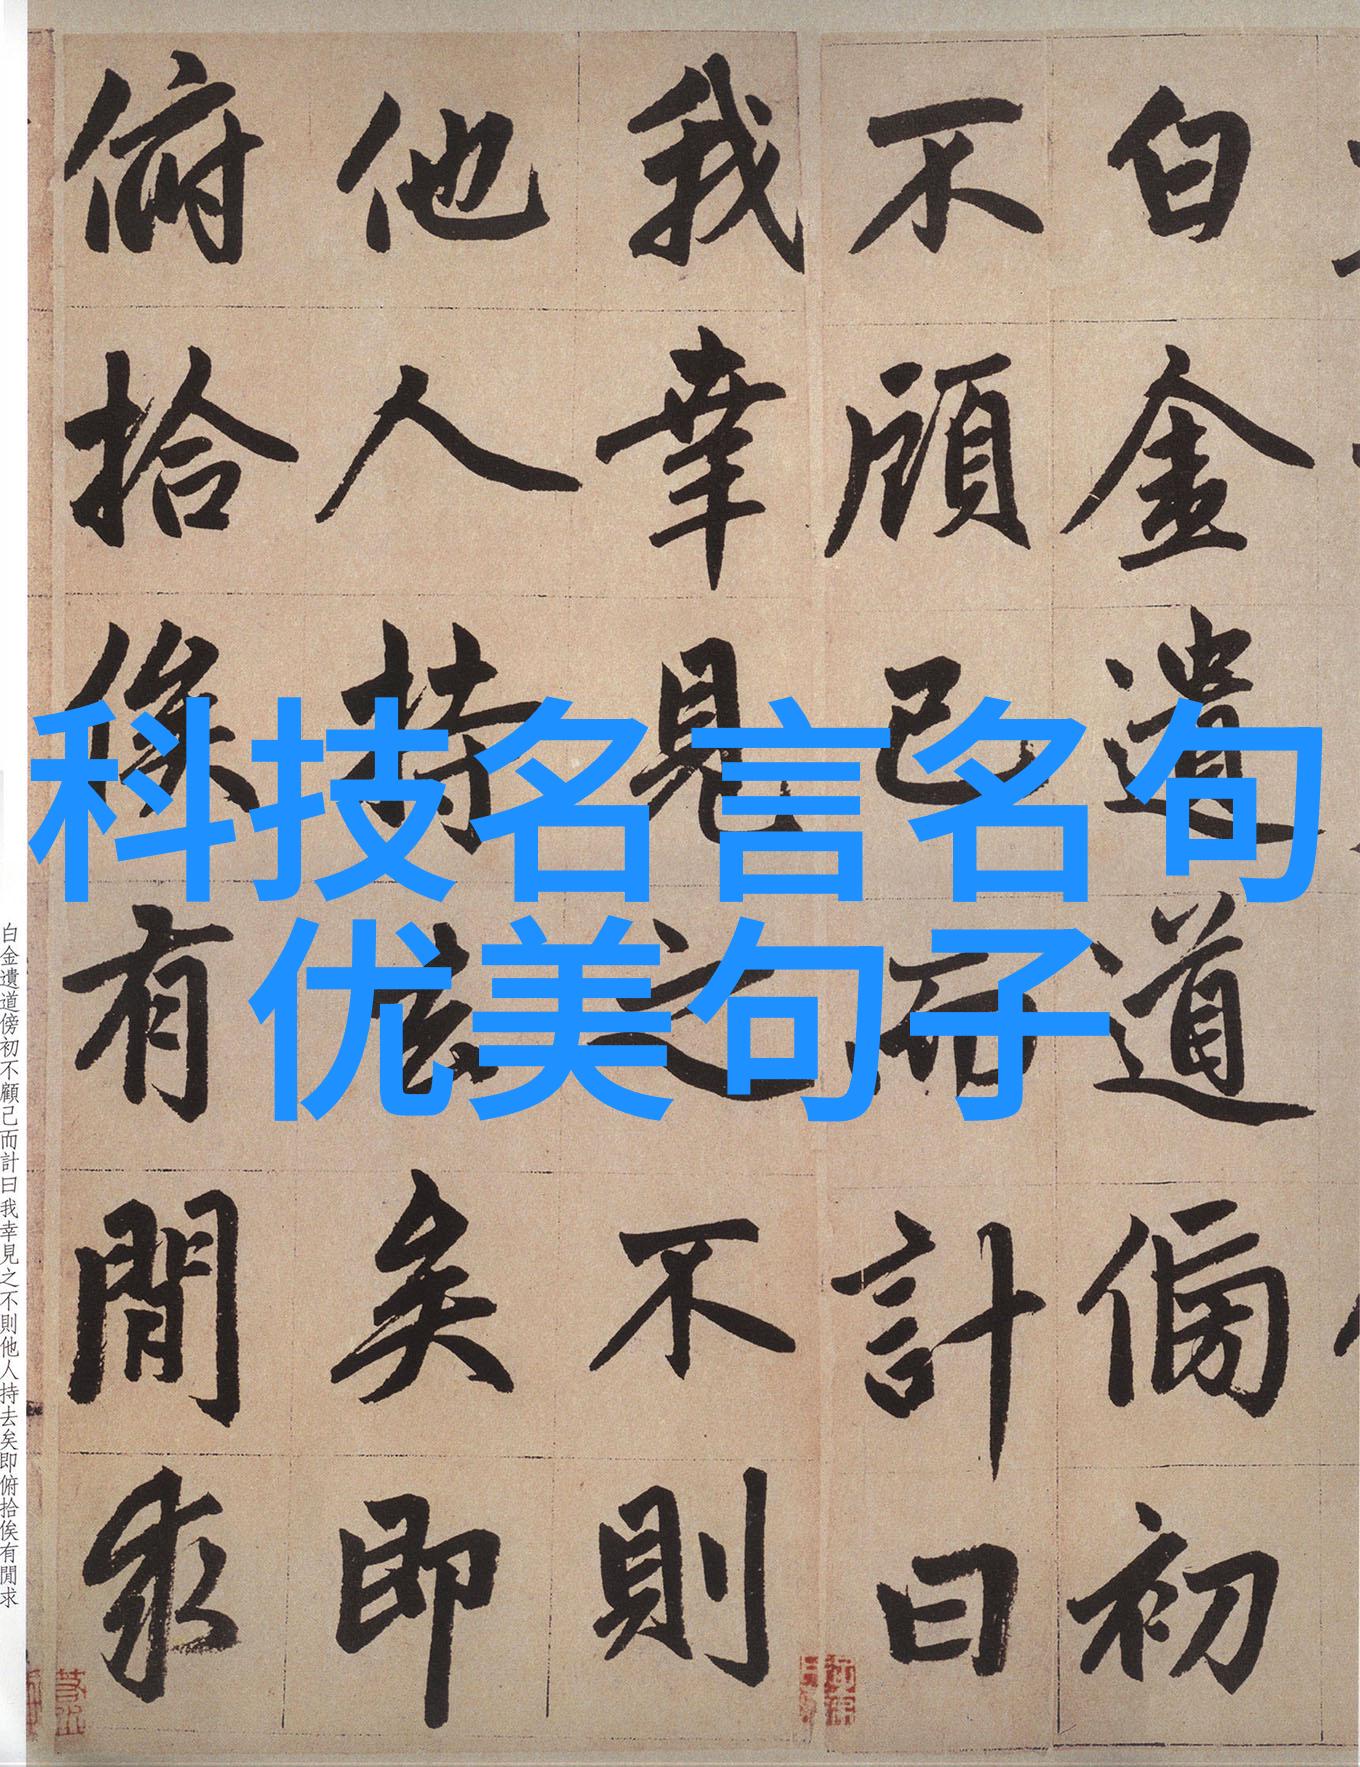 科技名言名句
优美句子
白金遺道傍初
不顧己而計曰
我幸見之不則
他人持去矣即
俯拾俟有閒求
白金遺道傍初不顧己而計曰我幸見之不則他人持去矣即俯拾俟有閒求